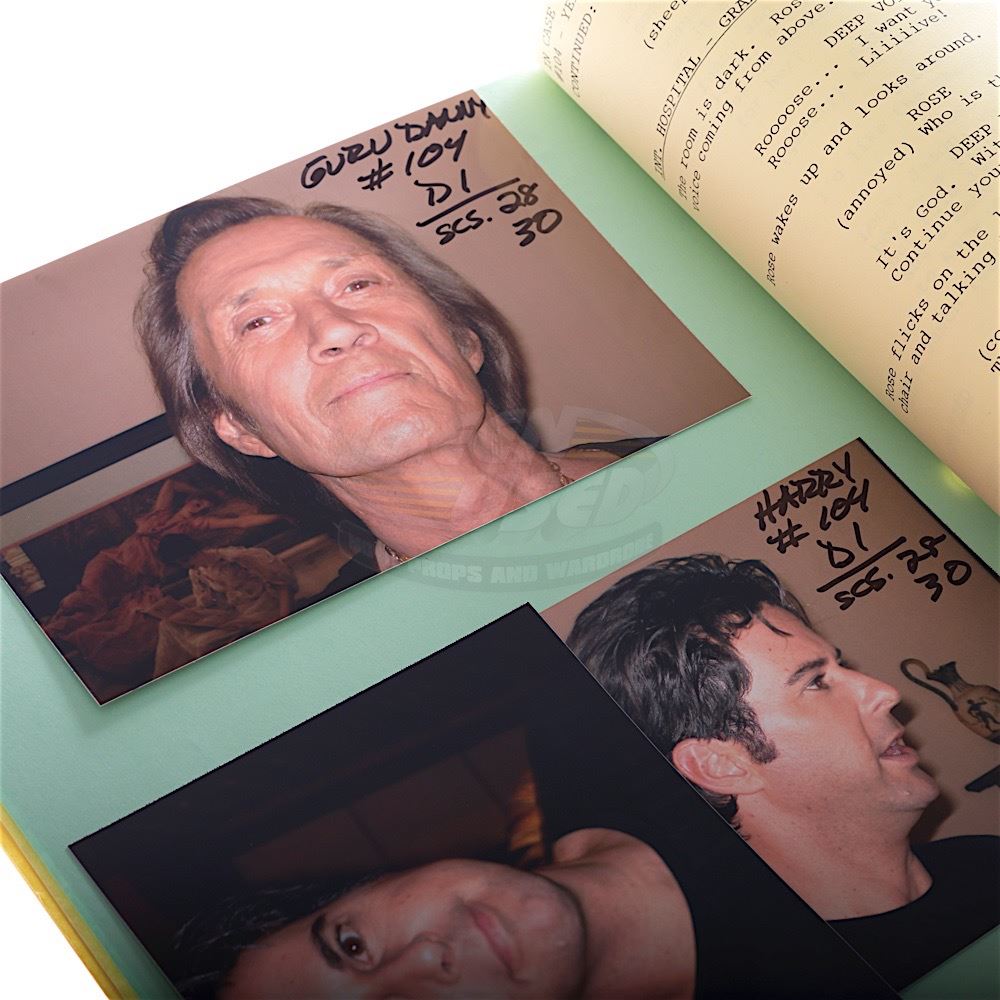 GURU DANNY
# 104
D1
SCS. 28
30
HARRY
# 104
D1
SCS. 28
30
IN CASE
#104 - YE
CONTINUED:
(sheep
INT. HOSPITAL - GRA
The room is dark. Ros
voice coming from above.
DEEP VOI
Roooose... I want y
Rooose... Liiiiive!
Rose wakes up and looks around.
ROSE
(annoyed) Who is t
DEEP
It's God. Wit
Continue you
Rose flicks on the
chair and talking
(co
PROPS AND WARDROBE